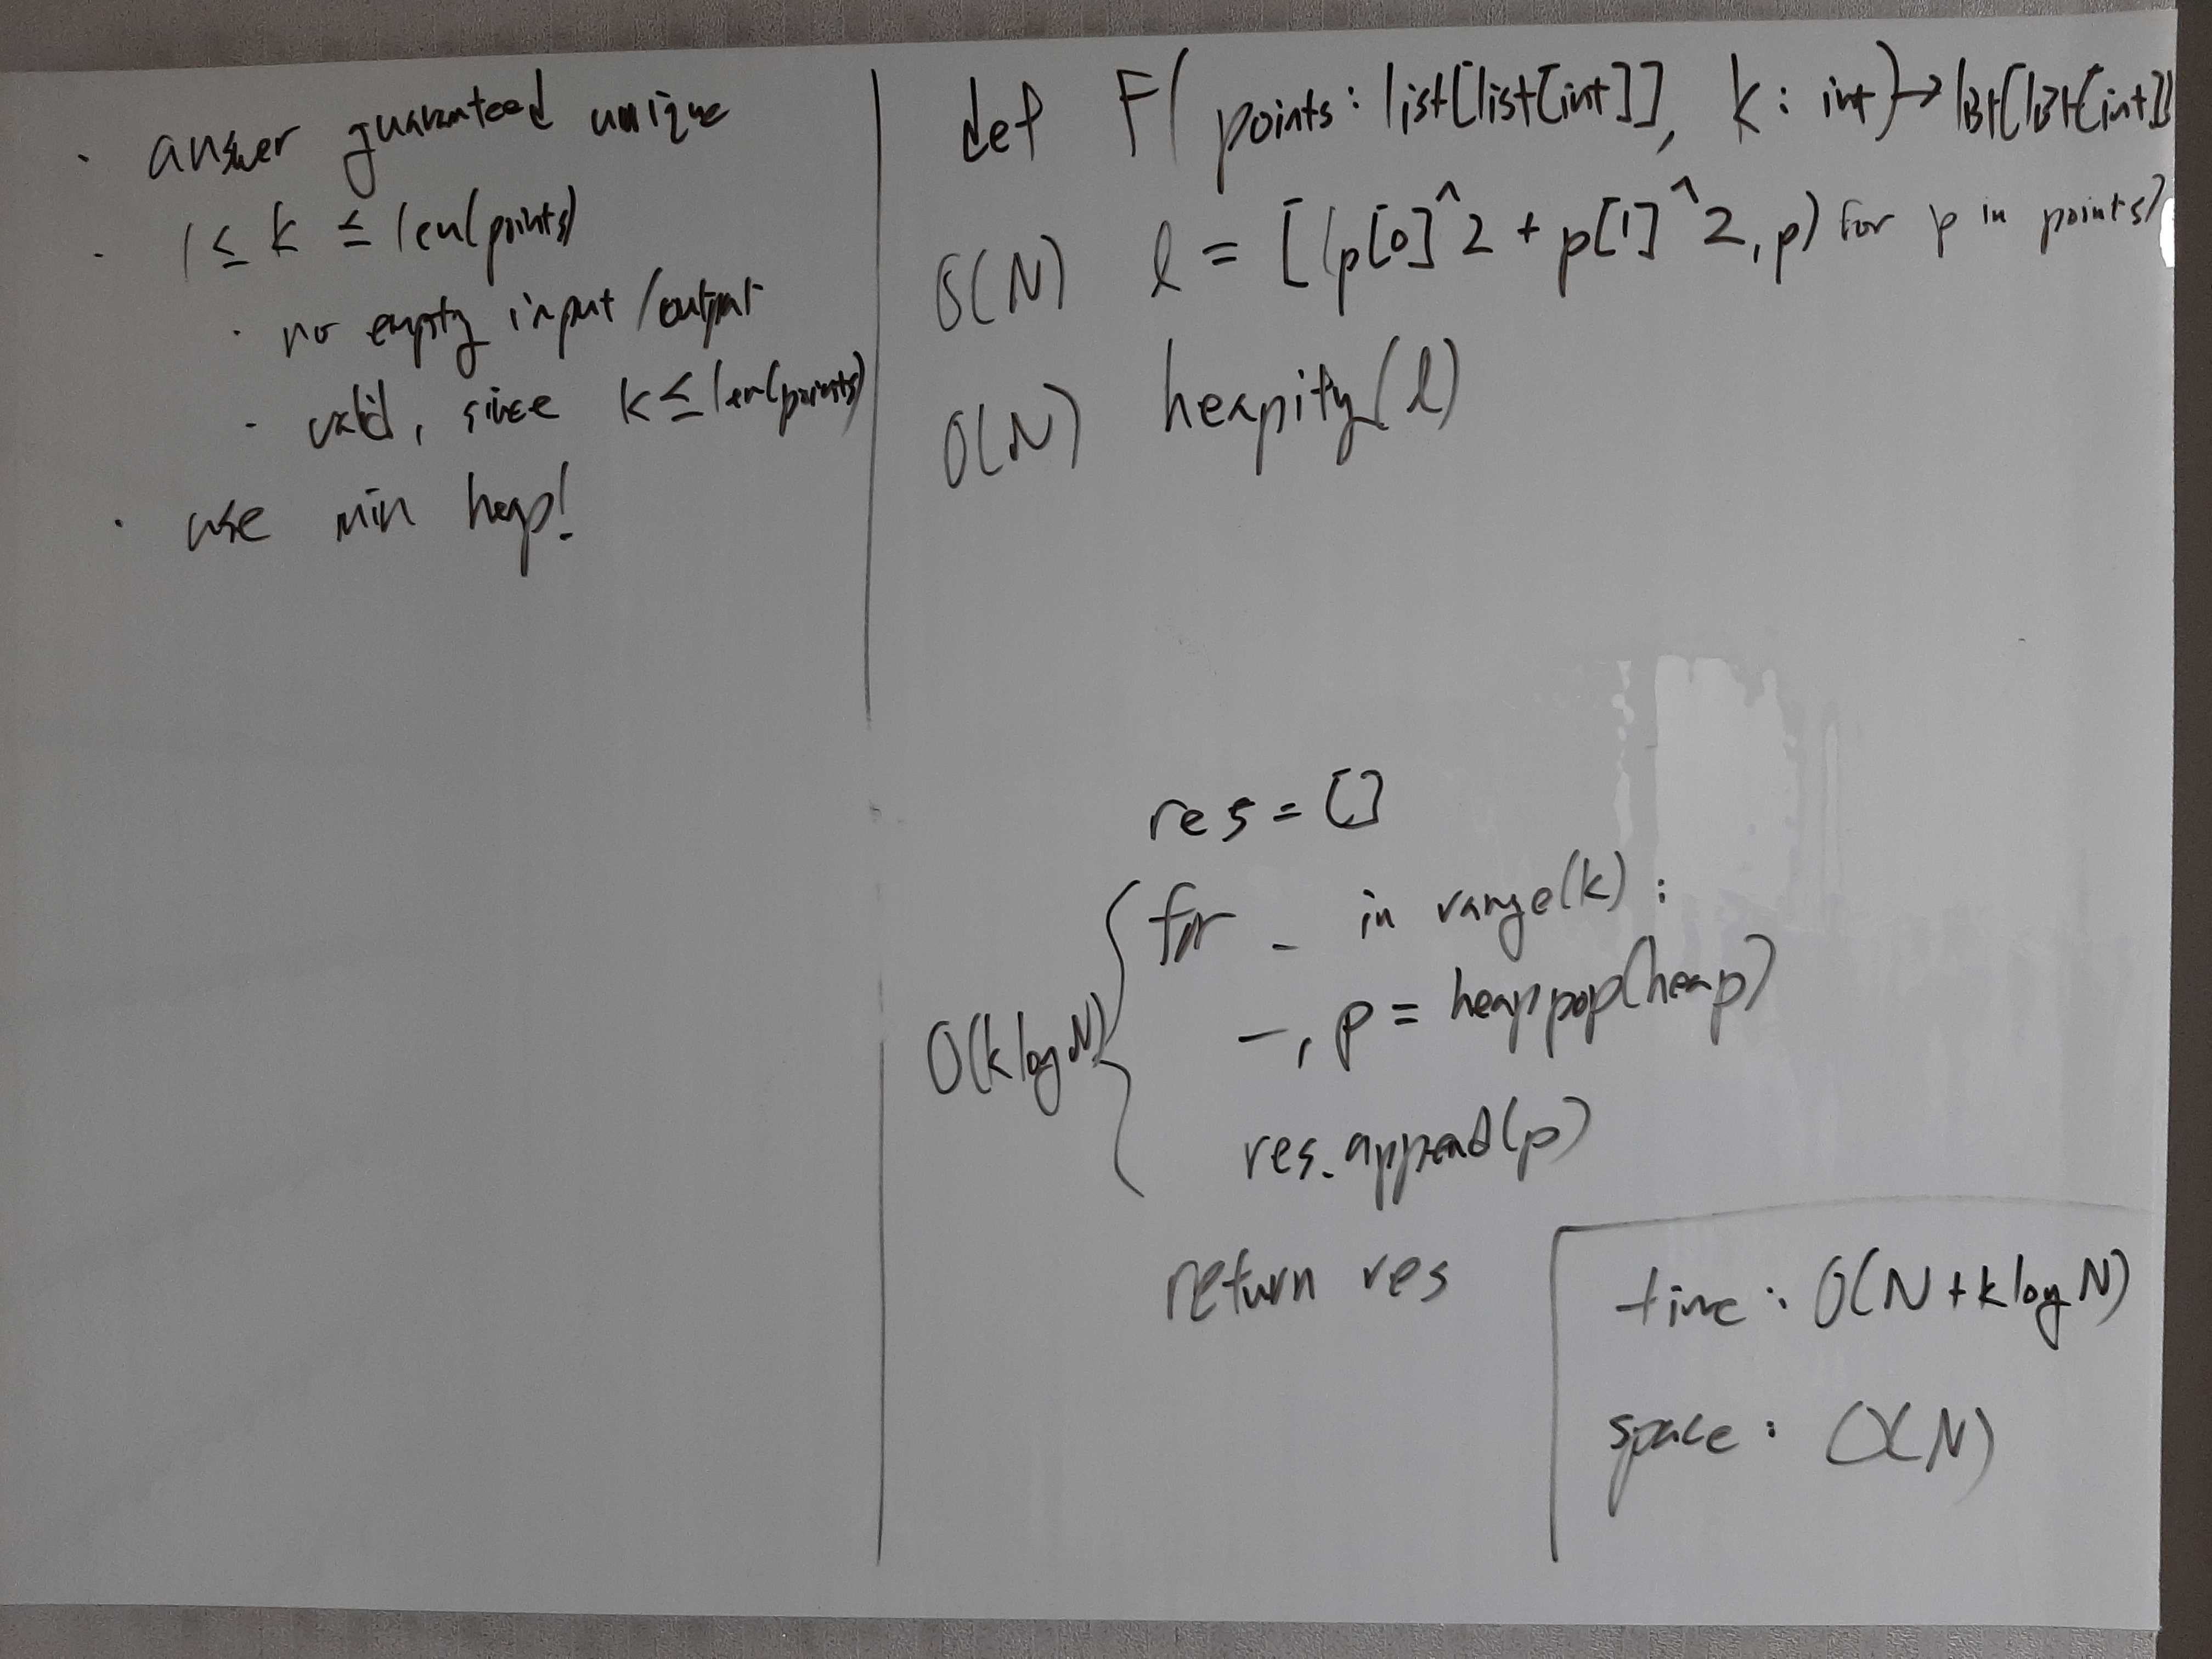 · answer guaranteed unique
· 1 ≤ k ≤ len(points)
· no empty input/output
· valid, since k ≤ len(points)
· use min heap!
def F( points: list[list[int]], k: int) → list[list[int]]
O(N) l = [(p[0]^2 + p[1]^2, p) for p in points]
O(N) heapify(l)
res = []
for _ in range(k):
O(k log N) _, p = heappop(heap)
res.append(p)
return res
time: O(N + k log N)
space: O(N)